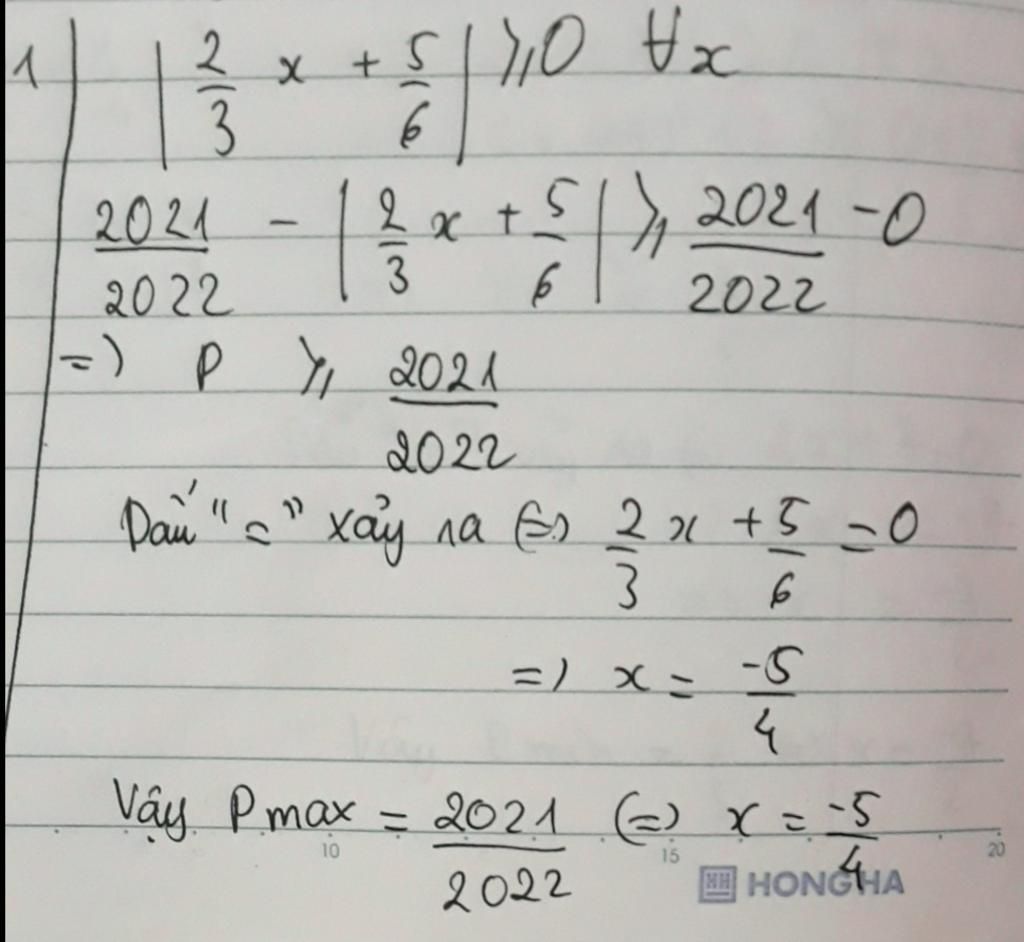 1 | |2/3 x + 5/6| ⩾ 0 ∀x
2021/2022 - |2/3 x + 5/6| ⩾ 2021/2022 - 0
=> P ⩾ 2021/2022
Dấu "=" xảy ra (=) 2/3 x + 5/6 = 0
=> x = -5/4
Vậy P max = 2021/2022 (=) x = -5/4
10 15 20
HH HONG HA